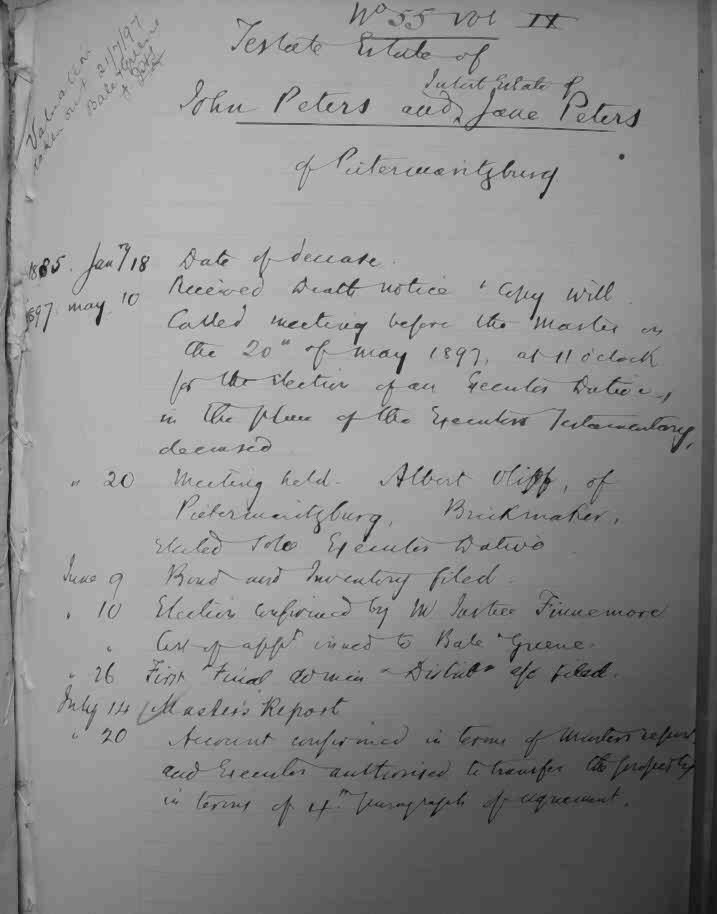 No 55 Vol II
Valuation
taken out 21/7/97
Bale & Greene
Testate Estate of
Intest Estate of
John Peters and Jane Peters
of Pietermaritzburg
1885. Jany 18 Date of decease.
1897. May 10 Received Death notice & Copy Will
Called meeting before the Master on
the 20th of May 1897, at 11 o'clock
for the election of an Executor Dative,
in the place of the Executors Testamentary,
deceased
" 20 Meeting held. Albert Oliff, of
Pietermaritzburg, Brickmaker,
elected Sole Executor Dative
June 9 Bond and Inventory filed.
" 10 Election confirmed by Mr Justice Finnemore
" Cert of appt issued to Bale & Greene.
" 26 First & Final admin & Distribn a/c filed.
July 14 Master's Report
" 20 Account confirmed in terms of Masters report
and Executor authorised to transfer the property
in terms of 4th paragraph of agreement.